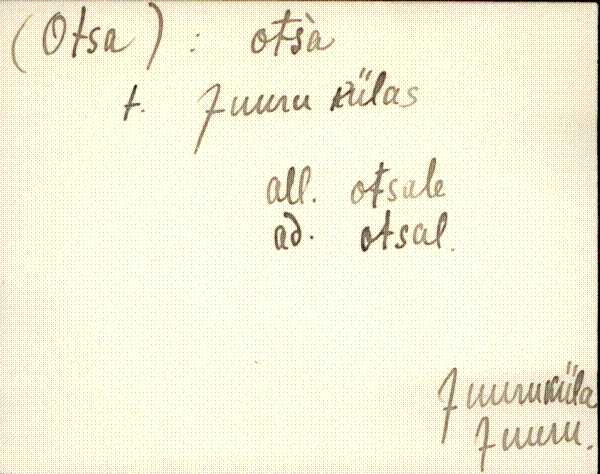 (Otsa) : otsà
t. Juuru külas
all. otsale
ad. otsal.
Juuruküla
Juuru.